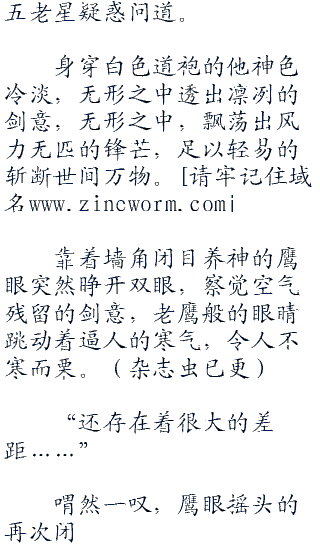 五老星疑惑问道。
身穿白色道袍的他神色
冷淡，无形之中透出凛冽的
剑意，无形之中，飘荡出风
力无匹的锋芒，足以轻易的
斩断世间万物。[请牢记住域
名www.zincworm.com|
靠着墙角闭目养神的鹰
眼突然睁开双眼，察觉空气
残留的剑意，老鹰般的眼睛
跳动着逼人的寒气，令人不
寒而栗。（杂志虫已更）
“还存在着很大的差
距……”
喟然一叹，鹰眼摇头的
再次闭